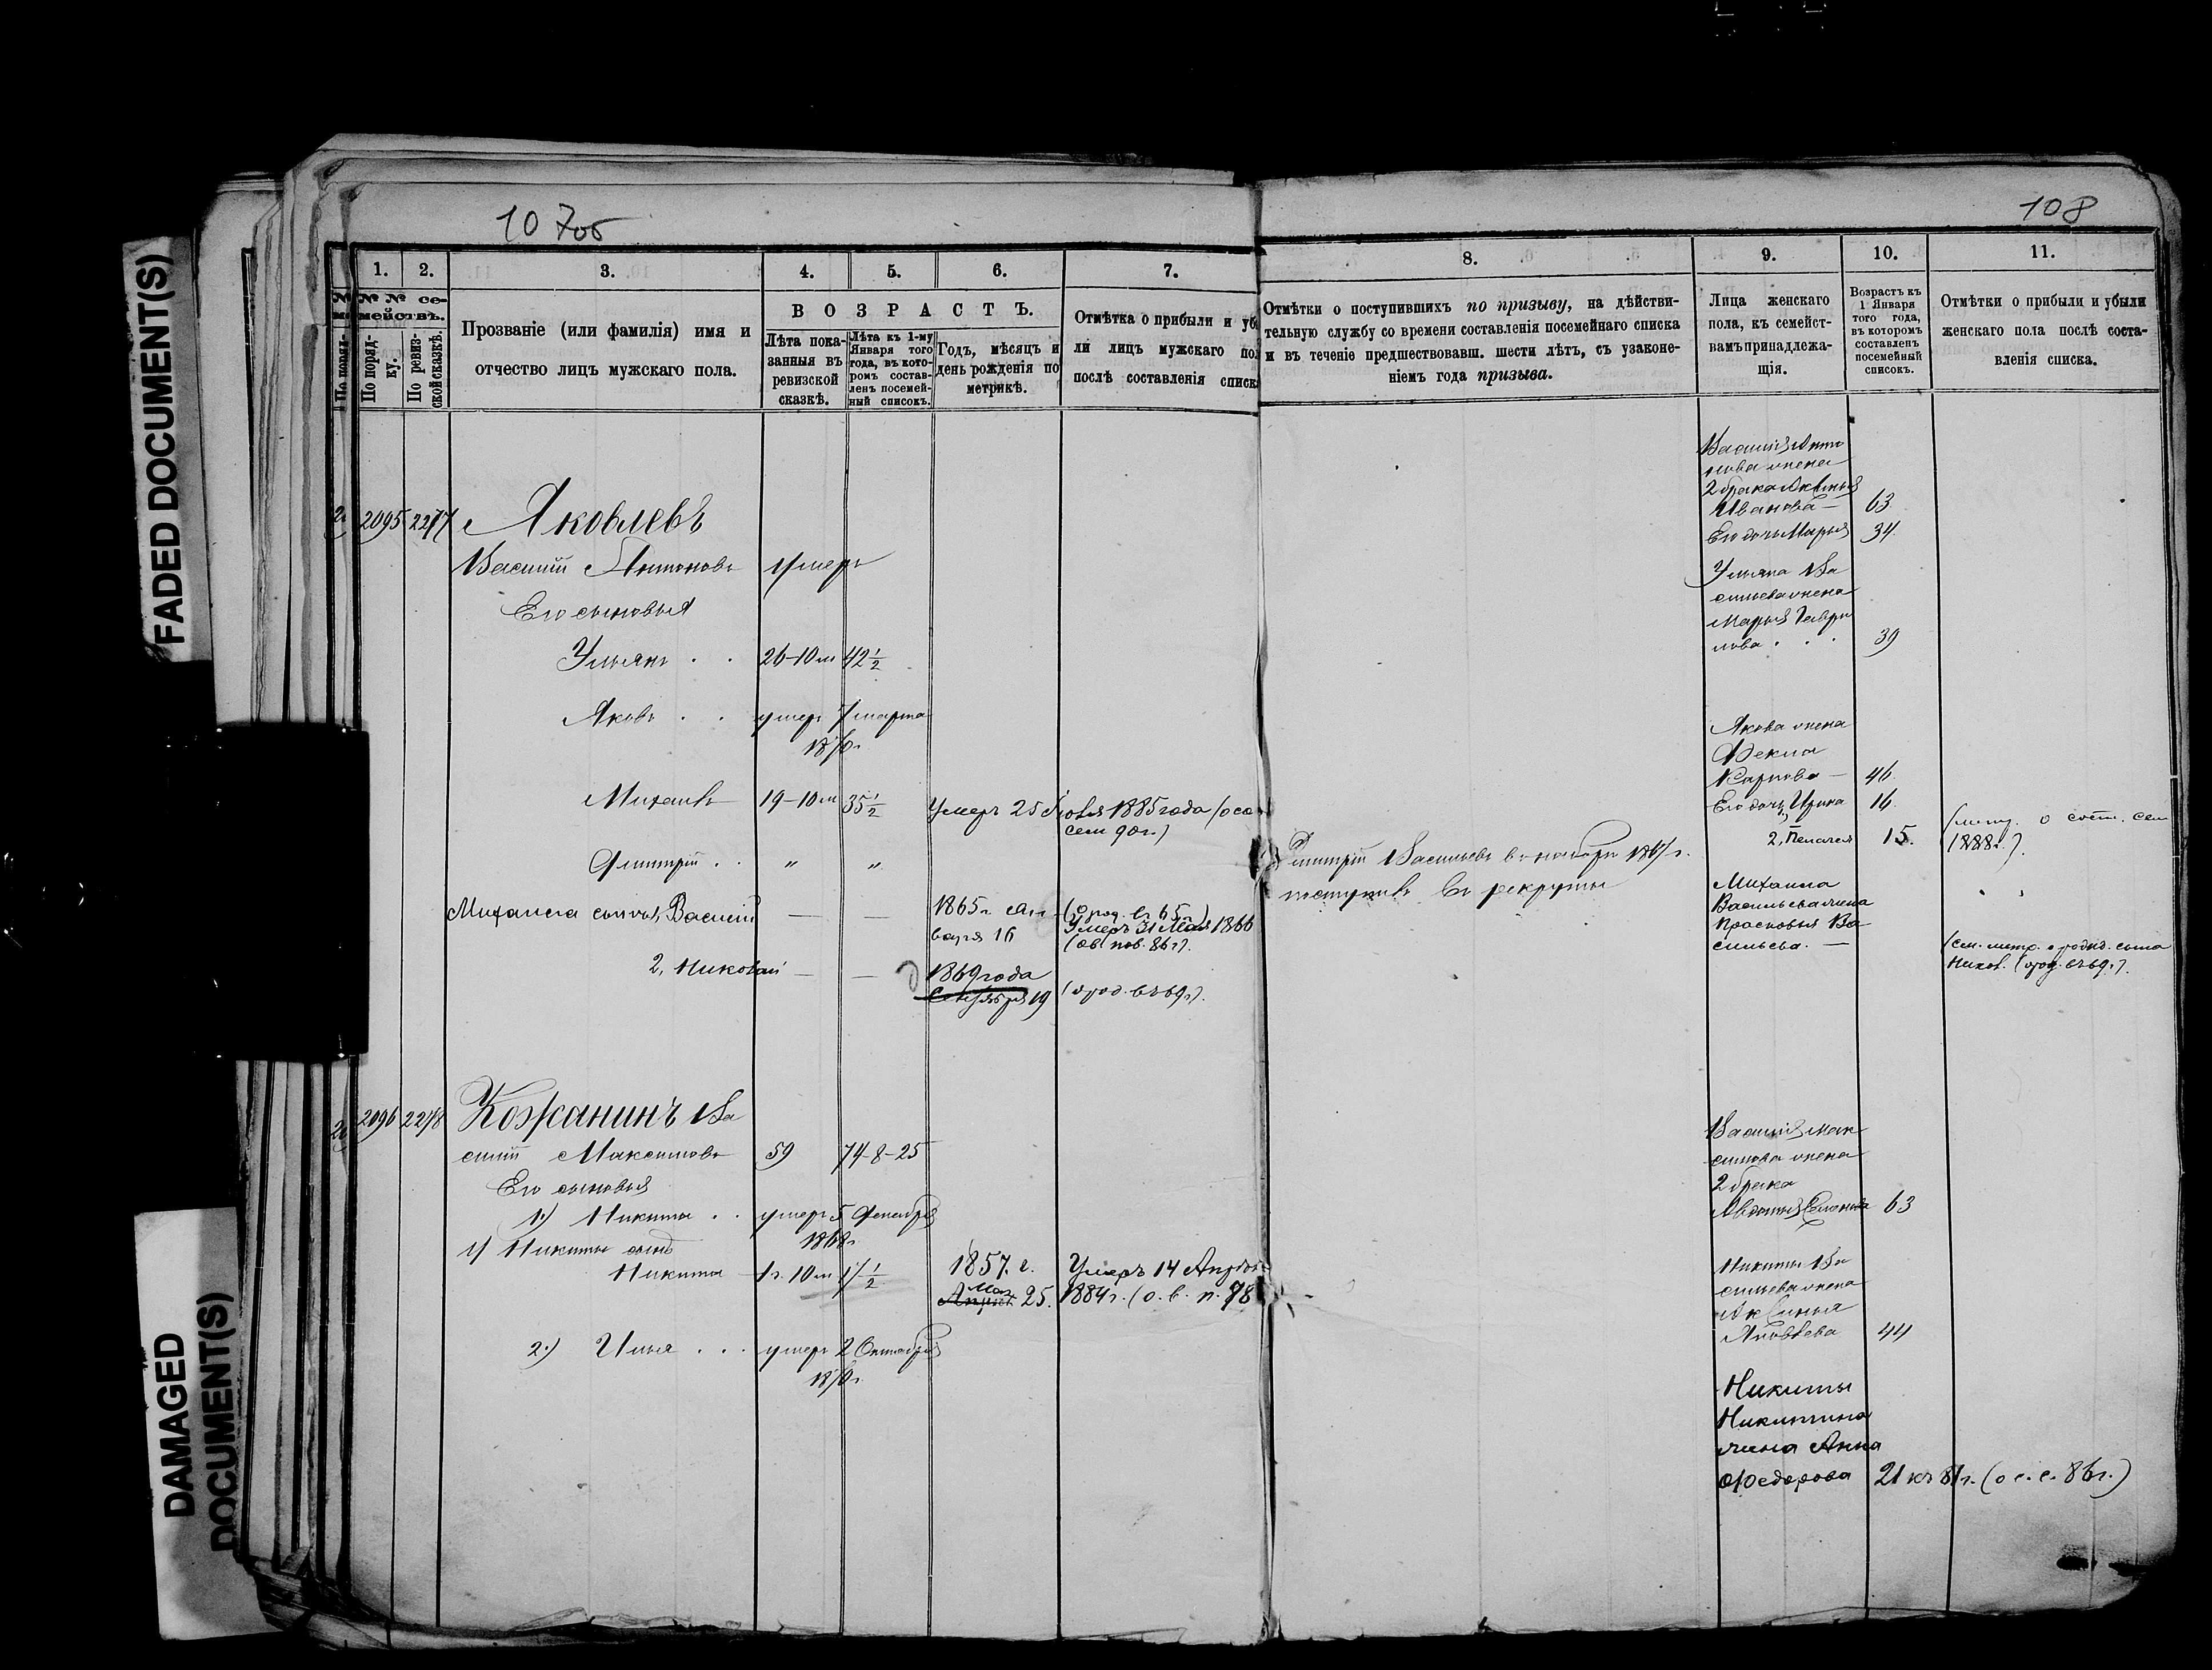 FADED DOCUMENT(S)
DAMAGED
DOCUMENT(S)
107об
1.
2.
3.
4.
5.
6.
7.
№ № се-
мействъ.
По поряд-
ку.
По ревиз-
ской сказкѣ.
Прозваніе (или фамилія) имя и
отчество лицъ мужскаго пола.
ВОЗРАСТЪ.
Лѣта пока-
занныя въ
ревизской
сказкѣ.
Лѣта къ 1-му
Января того
года, въ кото-
ромъ состав-
ленъ посемей-
ный списокъ.
Годъ, мѣсяцъ и
день рожденія по
метрикѣ.
Отмѣтка о прибыли и уб
ли лицъ мужскаго пол
послѣ составленія списк
2095 2277 Яковлевъ
Василій Антоновъ умеръ
Его сыновья
Ульянъ 26-10 м 42 1/2
Яковъ умеръ 7 марта
1870 г
Михаилъ 19-10 м 35 1/2 Умеръ 25 1885 года
сем 90 г.)
Дмитрій " "
Михаила сын. 1, Василій — — 1865 г. (о род. въ 65 г.)
16 Умеръ 31 Мая 1866
(ов. пов. 86 г.).
2, Николай — — 1869 года
Сентября 19 (о род. въ 69 г.).
2096 2278 Кожанинъ Ва
силій Максимовъ 59 74-8-25
Его сыновья
1.) Никита умеръ 5
1868 г
1) Никиты сынъ
Никита 1 г. 10 м 17 1/2 1857. г. Умеръ 14 Апрѣля
Мая
Апрѣля 25. 1884 г. (о. в. п. 98
2.) Илья умеръ 2 Октября
1870 г
108
8.
9.
10.
11.
Отмѣтки о поступившихъ по призыву, на дѣйстви-
тельную службу со времени составленія посемейнаго списка
и въ теченіе предшествовавш. шести лѣтъ, съ узаконе-
ніемъ года призыва.
Лица женскаго
пола, къ семейст-
вамъ принадлежа-
щія.
Возрастъ къ
1 Января
того года,
въ которомъ
составленъ
посемейный
списокъ.
Отмѣтки о прибыли и убыли
женскаго пола послѣ соста-
вленія списка.
Василія Анто
нова жена
2 брака Аксинья
Иванова — 63
Его дочь Марья 34
Ульяна Ва
сильева жена
Марья Гаври
лова 39
Якова жена
Фекла
Карпова — 46
Его дочь, Ирина 16
2, Пелагея 15. (метр. о сост. сем
1888 г.).
Дмитрій Васильевъ въ ноябрѣ 1867 г.
поступилъ въ рекруты
Михаила
Васильева жена
Прасковья Ва-
сильева. — (см. метр. о рожд. сына
Никол. (о род. въ 69 г.).
Василія Мак
симова жена
2 брака
Авдотья 63
Никиты Ва
сильева жена
Аксинья
Яковлева 44
Никиты
Никитина
жена Анна
Федорова 21 къ 81 г. (о с. с. 86 г.)